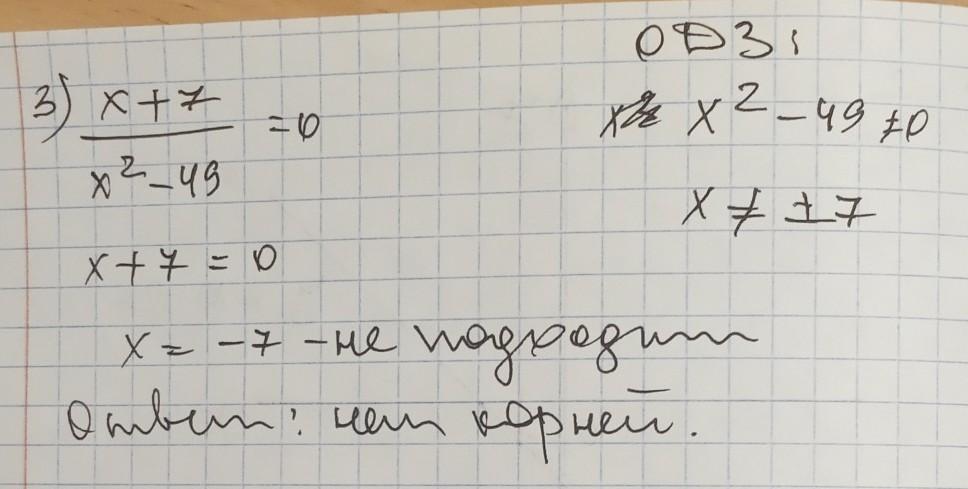 3) x+7 / x²-49 = 0
ОДЗ:
x² - 49 ≠ 0
x ≠ ±7
x+7 = 0
x = -7 - не подходит
Ответ: нет корней.